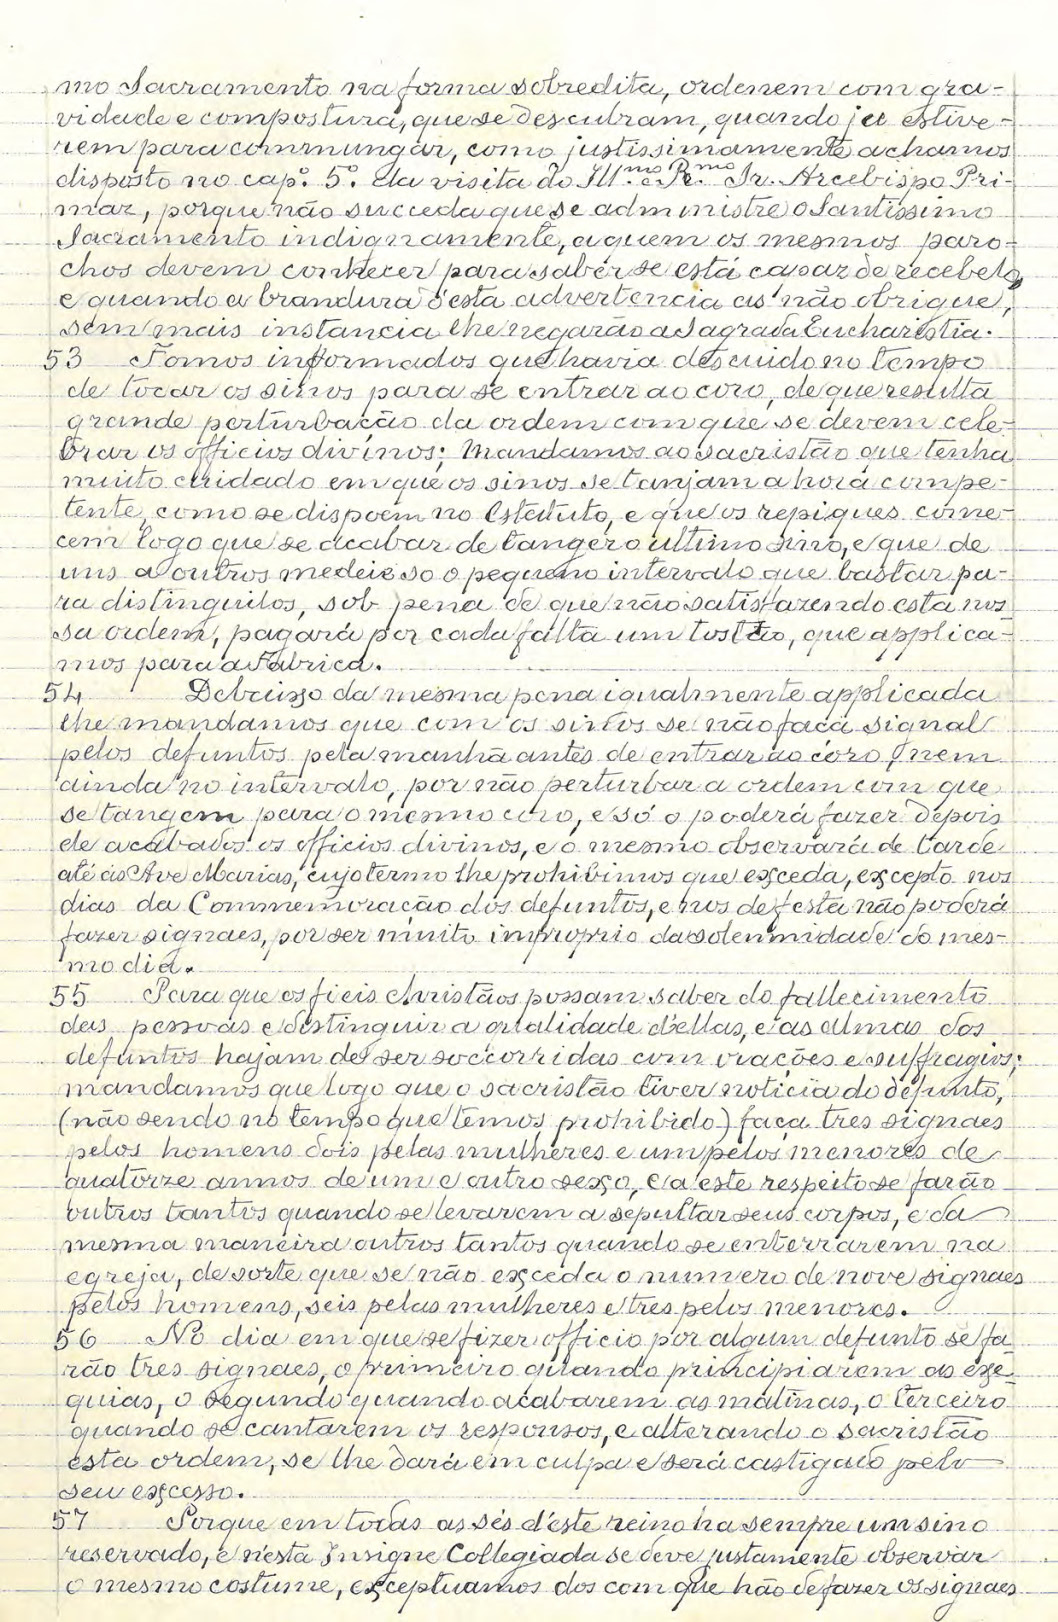 mo Sacramento na forma sobredita, ordenem com gra-
vidade e compostura, que se descubram, quando ja estive-
rem para commungar, como justissimamente achamos
disposto no cap.º 5.º da visita do Ill.mo e R.mo Sr. Arcebispo Pri-
maz, porque não succeda que se administre o Santissimo
Sacramento indignamente, a quem os mesmos paro-
chos devem conhecer para saber se está capaz de recebelo,
e quando a brandura d'esta advertencia as não obrigue,
sem mais instancia lhe negarão a Sagrada Eucharistia.
53 Fomos informados que havia descuido no tempo
de tocar os sinos para se entrar ao coro, de que resulta
grande perturbação da ordem com que se devem cele-
brar os officios divinos; Mandamos ao sacristão que tenha
muito cuidado em que os sinos se tanjam a hora compe-
tente, como se dispoem no Estatuto, e que os repiques come-
cem logo que se acabar de tanger o ultimo sino, e que de
uns a outros medeie so o pequeno intervalo que bastar pa-
ra distinguilos, sob pena de que não satisfazendo esta nos-
sa ordem, pagará por cada falta um tostão, que applica-
mos para a Fabrica.
54 Debaixo da mesma pena igualmente applicada
lhe mandamos que com os sinos se não faça signal
pelos defuntos pela manhã antes de entrar ao côro, nem
ainda no intervalo, por não perturbar a ordem com que
se tangem para o mesmo coro, e só o poderá fazer depois
de acabados os officios divinos, e o mesmo observará de tarde
até ás Ave Marias, cujo termo lhe prohibimos que exceda, excepto nos
dias da Commemoração dos defuntos, e nos de festa não poderá
fazer signaes, por ser muito improprio da solemnidade do mes-
mo dia.
55 Para que os fieis christãos possam saber do fallecimento
das pessoas e destinguir a qualidade d'ellas, e as almas dos
defuntos hajam de ser soccorridas com orações e suffragios;
mandamos que logo que o sacristão tiver noticia do defunto,
(não sendo no tempo que temos prohibido) faça tres signaes
pelos homens dois pelas mulheres e um pelos menores de
quatorze annos de um e outro sexo, e a este respeito se farão
outros tantos quando se levarem a sepultar seus corpos, e da
mesma maneira outros tantos quando se enterrarem na
egreja, de sorte que se não exceda o numero de nove signaes
pelos homens, seis pelas mulheres e tres pelos menores.
56 No dia em que se fizer officio por algum defunto se fa-
rão tres signaes, o primeiro quando principiarem as exe-
quias, o segundo quando acabarem as matinas, o terceiro
quando se cantarem os responsos, e alterando o sacristão
esta ordem, se lhe dará em culpa e será castigado pelo
seu excesso.
57 Porque em todas as sés d'este reino ha sempre um sino
reservado, e n'esta Insigne Collegiada se deve justamente observar
o mesmo costume, exceptuamos dos com que hão de fazer os signaes